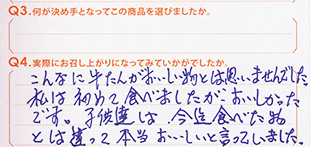 Q3.何が決め手となってこの商品を選びましたか。
Q4.実際にお召し上がりになってみていかがでしたか。
こんなに牛たんがおいしい物とは思いませんでした
私は初めて食べましたが、おいしかった
です。子供達は今迄食べた物
とは違って本当においしいと言っていました。